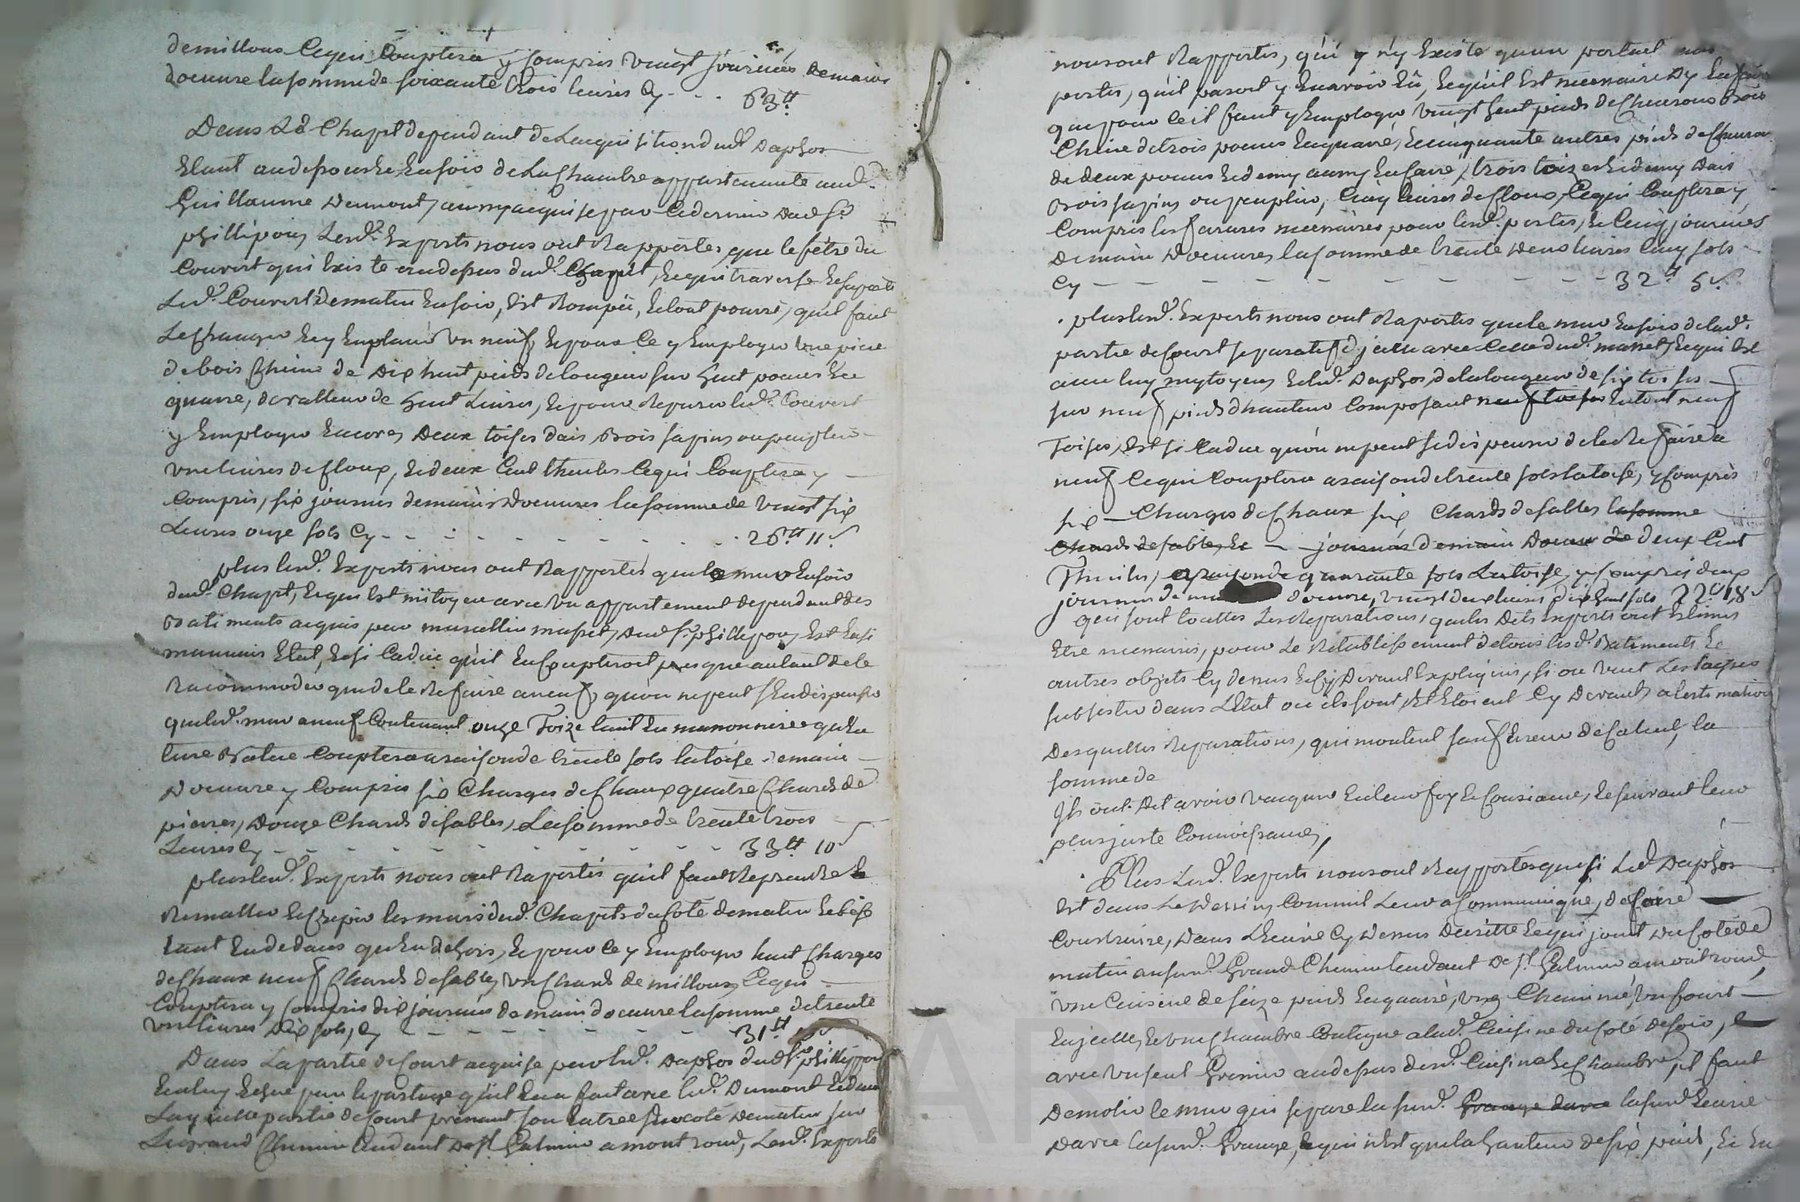 de millons Cequi Couptera y Compris vingt journées demains
doeuvre lasomme de soixante trois livres Cy - - - 63tt
Dans Led Chapit dependant de Lacquisition dud. Daphos
Etant audessous Ensoir de La Chambre appartenante aud.
Guillaume Dumont, aussy acquise par Cedernier dud Sr
phillipon, Lesd. Experts nous ont Rapportes, que le fétre du
Couvert qui Existe audessus dud. Chapit, Eequi traverse
Led. Couvert dematin Ensoir, Est Rompu, Etout pourri, quil faut
Le Changer Eey Emplacer un neuf, Epour Ce y Employer une piece
debois Chéne de Dix huit pieds delongeur sur huit pouces En
quarré, delavaleur de huit Livres, Epour Reparer led. Couvert
y Employer Encores Deux toises d'ais, Bois sapins oupeuplier
une livres de Cloux, Edeux Cent thuiles Cequi Couptera y
Compris, six journées demains Doeuvres lasomme de vingt six
Livres onze sols Cy - - - - - - - - - 26tt 11s
plus lesd. Experts nous ont Rapportés que le mur Ensoir
dud. Chapit, Eequi Est mitoyen avec un appartement dependant des
Batiments acquis par marcellin masset, dud Sr phillipon, Est En si
mauvais Etat, Esi Caduc qu'il En Coupteroit presque autant dele
Racommoder que dele Refaire aneuf, quon nepeut sen dispenser
queled. mur aneuf Contenant onze Toize tant En maconnerie qu'En
Couptera araison de trente sols latoise Demain
Doeuvre y Compris six Charges deChaux quatre Chards de
pierres, Douze Chards desables, Lasomme de trente trois
Livres Cy - - - - - - - - - 33tt 10s
plus lesd. Experts nous ont Raportés qu'il faut Reprendre
Remailler Ecrepir les murs dud. Chapit du Coté dematin Ebise
tant Endedans qu'En dehors, Epour Ce y Employer huit Charges
deChaux neuf Chards desable, un Chard de millons, Cequi
Couptera y Compris dix journées demain doeuvre lasomme detrente
une livres Dix sols, Cy - - - - - - 31tt 10s
Dans Lapartie deCourt acquise par led. Daphos dud Sr phillipon
par lepartage qu'il En a fait avec led. Dumont
Laquelle partie deCourt prenant son Entrée ducoté Dematin sur
Legrand Chemin tendant de St Galmier a montrond, Lesd. Experts
nous ont Rapportes, qui y n'y Existe qu'un portail sans
portes, qu'il paroit y Enavoir Eû, Eequ'il Est necessaire Dy Enfaire
que pour Ce il faut y Employer vingt huit pieds de Chevrons Bois
Chéne de trois pouces Enquarré, Eecinquante autres pieds de Chevron
de deux pouces Edemy aussy Enquarré, trois toizes Edemy Dais
Bois sapins oupeuplier, Cinq livres de Cloux, Cequi Couptera y
Compris les ferrures necessaires pour lesd. portes, Ee Cinq journées
Demain Doeuvres, lasomme de trente Deux livres Cinq sols
Cy - - - - - - - - 32tt 5s
plus lesd. Experts nous ont Raportés que le mur Ensoir delad.
partie deCourt separatif d'icelle avec Celle dud. masset, Eequi Est
avec luy mytoyen Eled. Daphos, de la longeur desix toises
sur neuf pieds d'hauteur Composant neuf toises Entout neuf
Toises, Est si Caduc qu'on nepeut se dispenser dele Refaire a
neuf Cequi Couptera araison detrente sols latoise, y Compris
six Charges deChaux six Chards desables lasomme
Chards desables Ee - - journées demain Doeuvre de deux Cent
Thuiles, araison de quarante sols Latoise, y Compris deux
journées de main doeuvre, vingt deux livres dix huit sols 22tt 18s
qui sont touttes Les Reparations, que les Dits Experts ont Estimés
Etre necessaires, pour Le Retablissement detous lesd. Batiments Ee
autres objets Cy dessus Ecy Devant Expliqués, si on veut Les
subsister dans L'Etat ou ils sont, Et Etoient Cy Devant a lestimation
Desquelles Reparations, qui montent sauf Erreur deCalcul, la
somme de
Ils ont Dit avoir vacqué En leur foy Econsciance, Eesuivant leur
plus juste Connoissance,
Plus Lesd. Experts nous ont Rapportés que si Led Daphos
Est dans Ledessein, Comme il Leur a Communiqué, defaire
Construire, Dans L'Ecurie Cy Dessus Decritte Eequi joint du Coté de
matin au susd. Grand Chemin tendant de St Galmier a montrond,
une Cuisine deseize pieds Enquarré, une Cheminé, un fourt
En icelle, Eeune Chambre Contigue a lad. Cuisine du Coté desoir,
avec un seul Grenier audessus desd. Cuisine Ee Chambre, il faut
Demolir le mur qui separe lasusd. Grange davec lasusd. Ecurie
Davec lasusd. Grange, Eequi n'Est que la hauteur de six pieds, Ee En